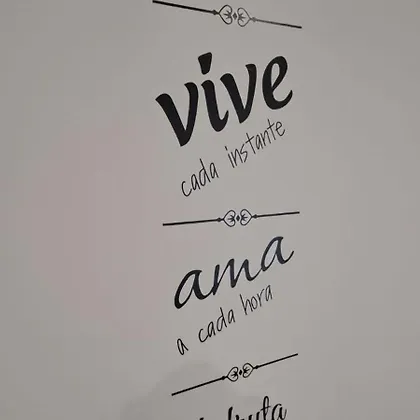 vive
cada instante
ama
a cada hora